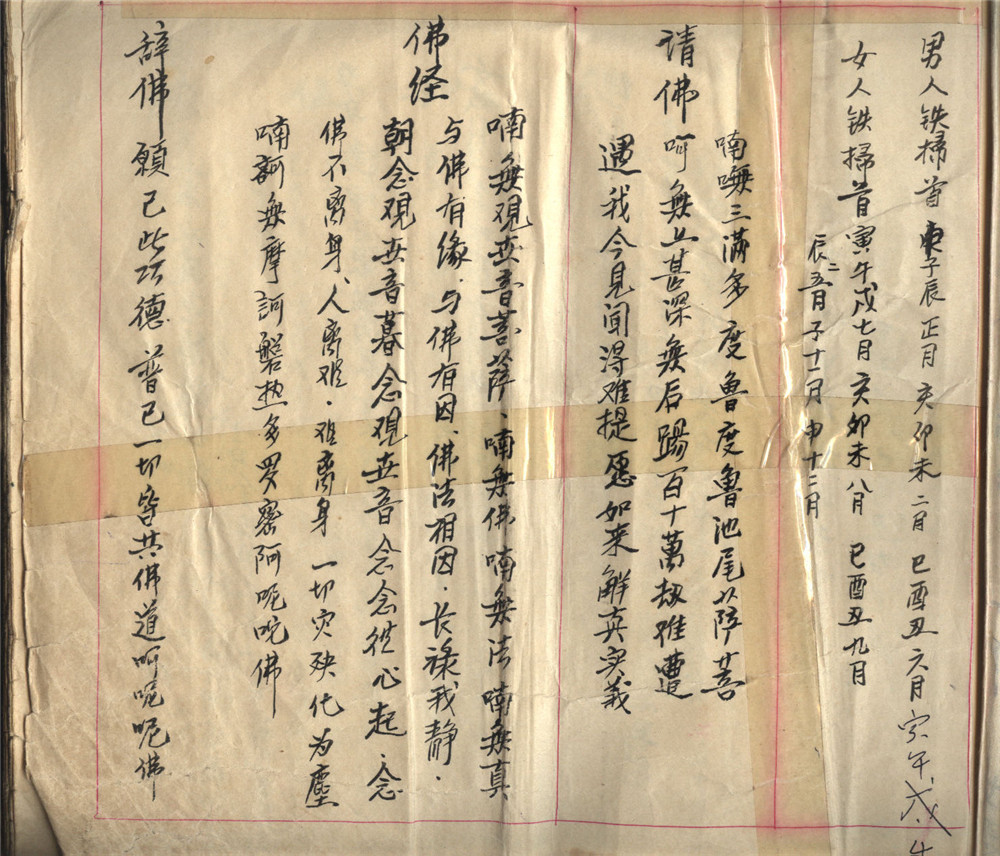 男人铁掃首 子辰正月 亥卯未二月 巳酉丑六月 寅午戌
女人铁掃首寅午戌七月 亥卯未八月 巳酉丑九月
辰二五月子十一月申十二月
请佛
喃嘸三满多度鲁度鲁池尾以萨菩
呵無上甚深無后踢百十萬劫难遭
遇我今見闻得难提愿如来解真实義
佛经
喃無观世音菩萨、喃無佛喃無法喃無真
与佛有缘、与佛有因、佛法相因、长禄我静、
朝念观世音暮念观世音念念從心起、念
佛不离身、人离难、难离身一切灾殃化为塵
喃訶無摩訶磐热多罗密阿呢吃佛
辞佛
願已此功德普已一切皆共佛道呵呢呢佛